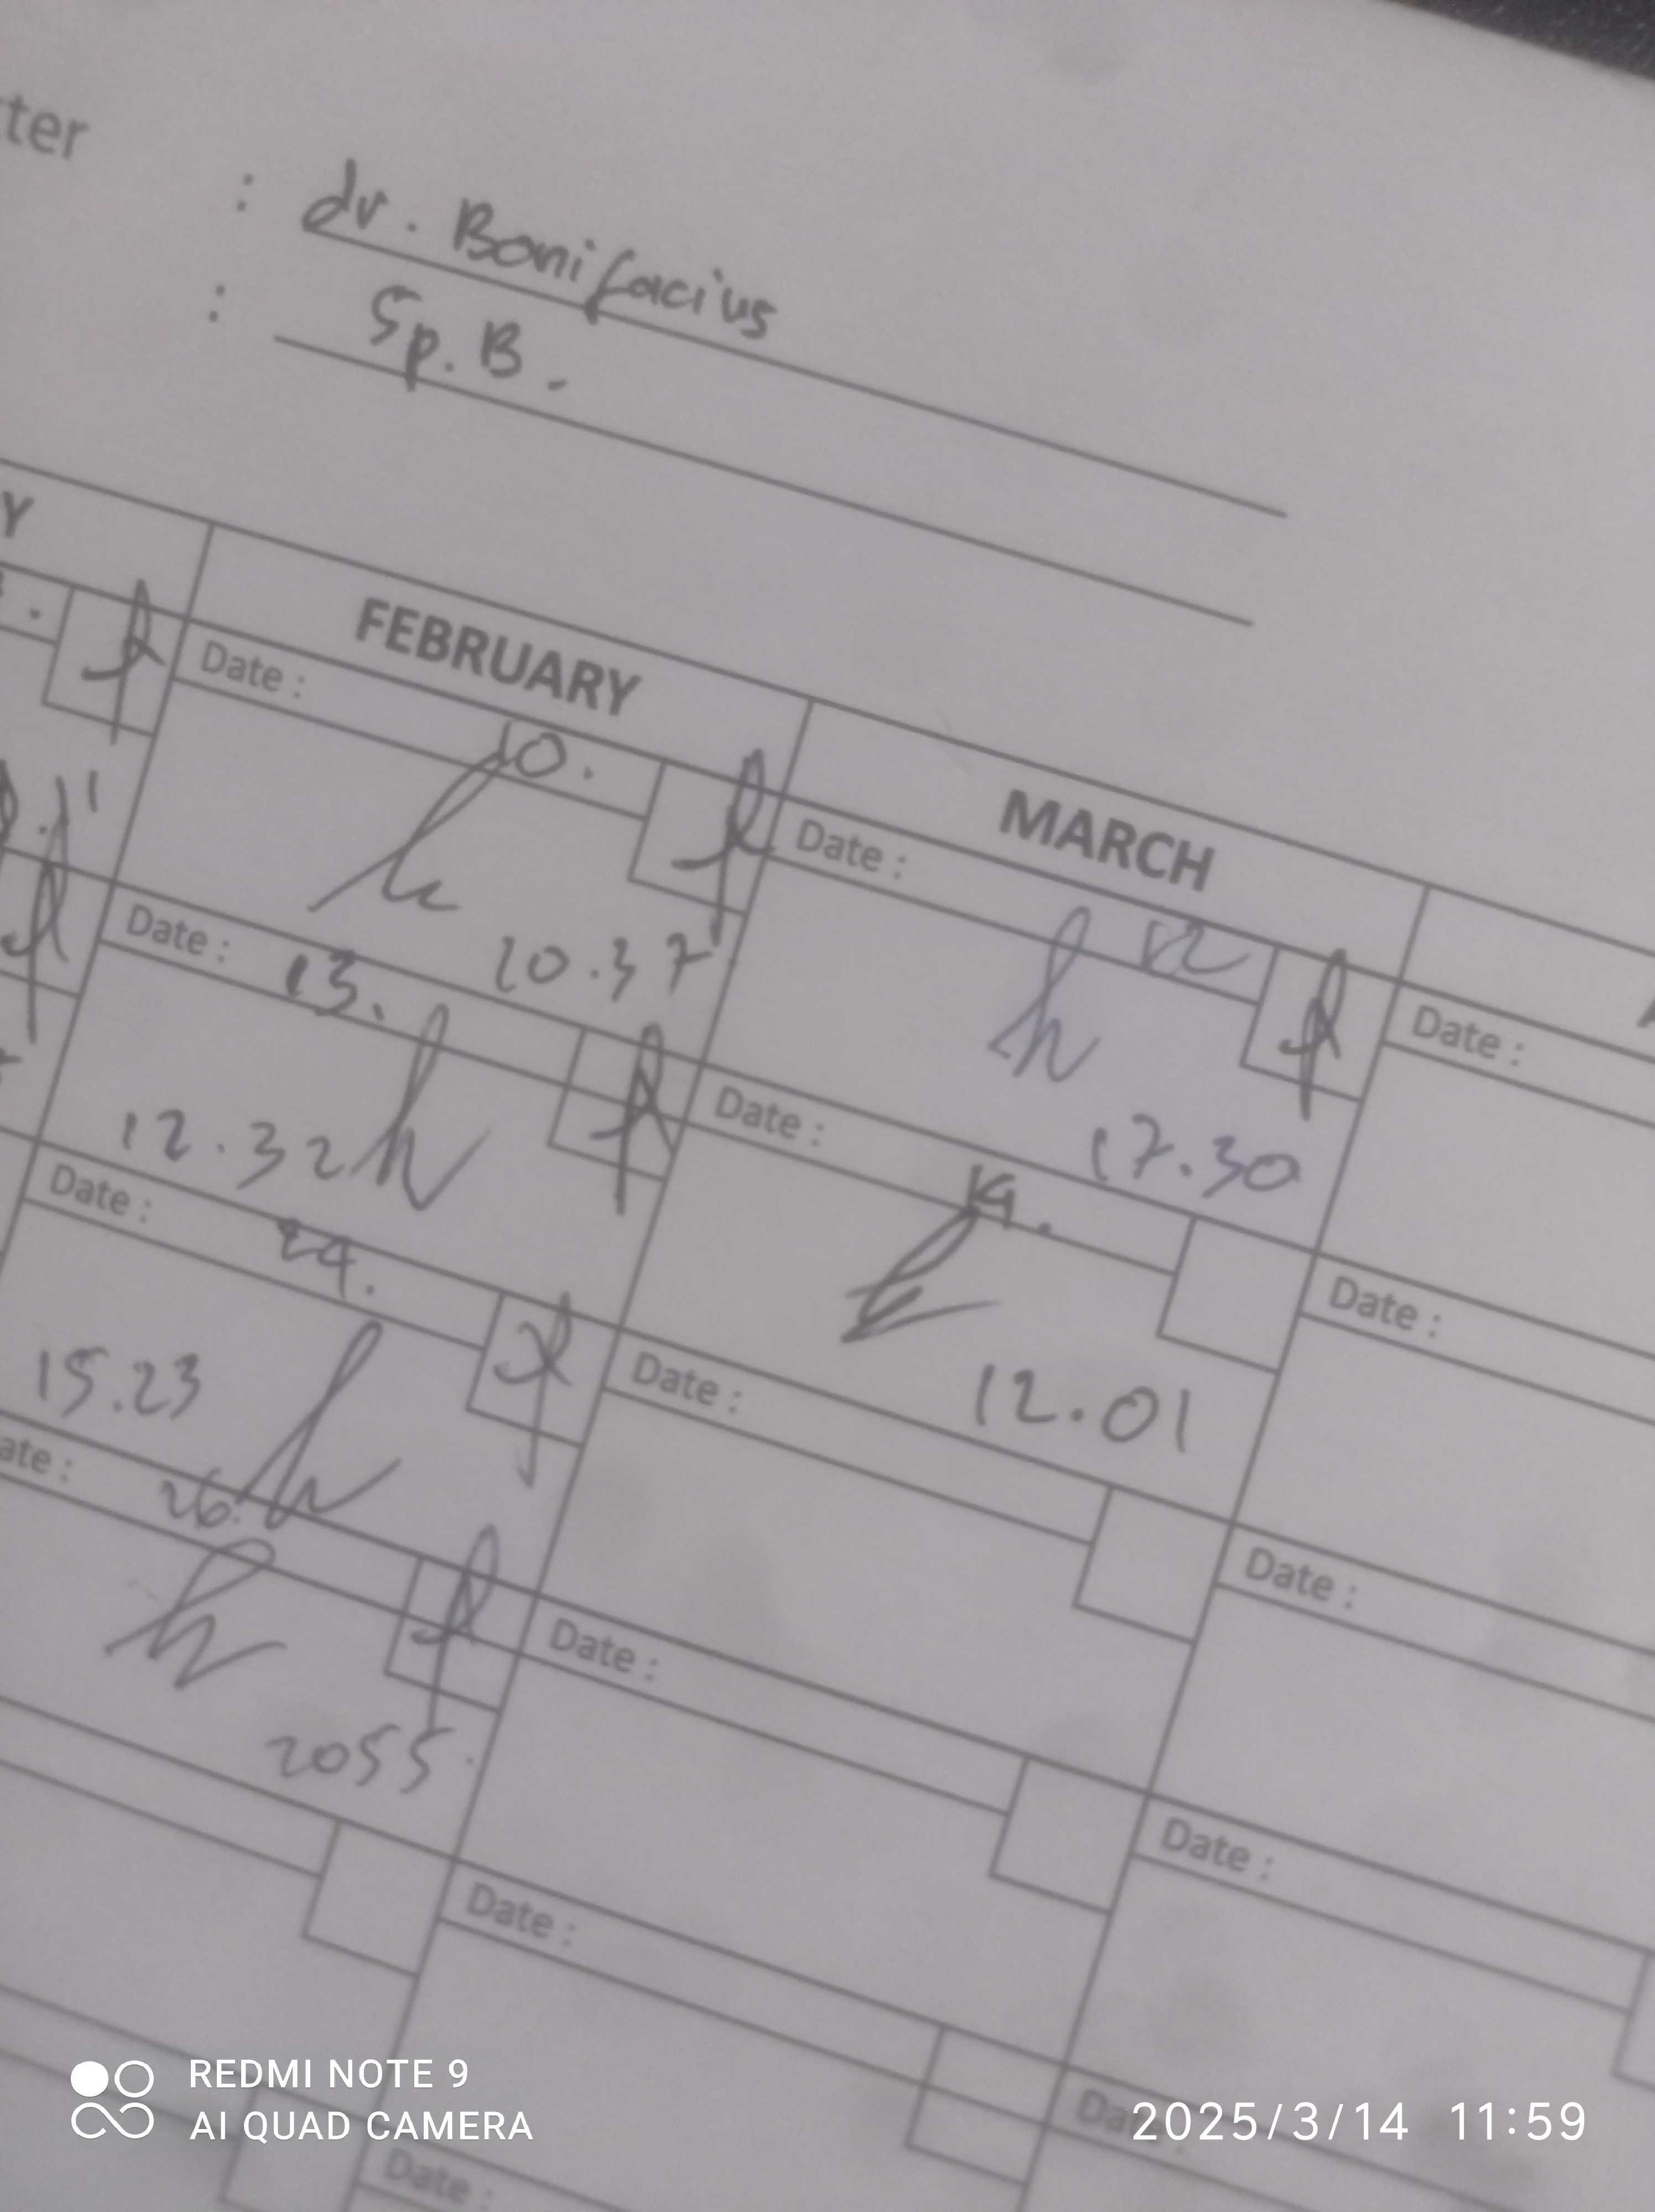 tter
: dr. Bonifacius
: Sp. B.
Y
FEBRUARY
MARCH
Date : 10.
10.37
Date : 12
17.30
Date :
Date : 13.
12.32
Date : 14.
12.01
Date :
Date : 24.
15.23
Date :
Date :
ate : 26.
2055
Date :
Date :
Date :
Date :
Date :
REDMI NOTE 9
AI QUAD CAMERA
2025/3/14 11:59